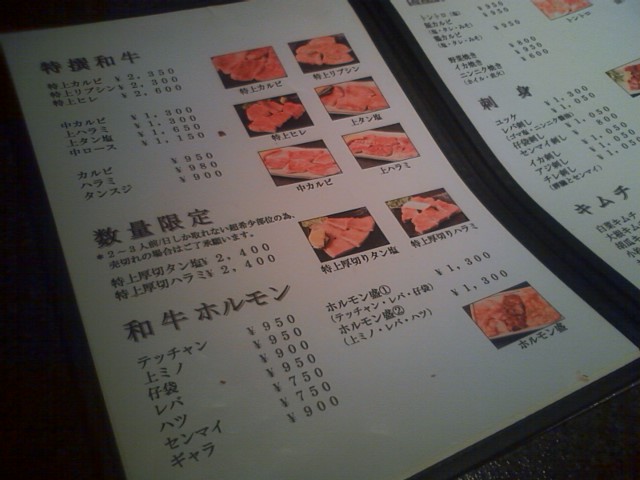 特撰和牛
特上カルビ ￥2,350
特上リブシン ￥2,300
特上ヒレ ￥2,600
中カルビ ￥1,300
上ハラミ ￥1,300
上タン塩 ￥1,650
中ロース ￥1,150
カルビ ￥950
ハラミ ￥980
タンスジ ￥900
特上カルビ
特上リブシン
特上ヒレ
上タン塩
中カルビ
上ハラミ
数量限定
●2－3人前/日しか取れない超希少部位の為、
売切れの場合はご了承願います。
特上厚切タン塩 ￥2,400
特上厚切ハラミ ￥2,400
特上厚切りタン塩
特上厚切りハラミ
和牛ホルモン
テッチャン ￥950
上ミノ ￥950
仔袋 ￥900
レバ ￥950
ハツ ￥750
センマイ ￥750
ギャラ ￥900
ホルモン盛① ￥1,300
(テッチャン・レバ・仔袋)
ホルモン盛② ￥1,300
(上ミノ・レバ・ハツ)
ホルモン盛
トントロ(塩) ￥950
豚カルビ
(塩・タレ・ムセ)
トントロ
野菜焼き
イカ焼き
ニンニク焼き
(ホイル・素火)
刺身
ユッケ
レバ刺し
(ゴマ塩・ニンニク醤油)
仔袋刺し
センマイ刺し
イカ刺し
アカ刺し
チレ刺し
キムチ
白菜キムチ
大根キムチ